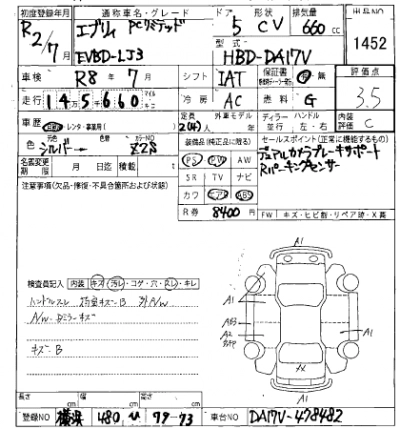 初度登録年月 通称車名・グレード ドア 形状 排気量 出品NO
R2/7月 エブリィ PCリミテッド 5 CV 660cc 1452
EVBD-LJ3 型式 HBD-DA17V
車検 R8年7月 シフト IAT 保証書 有・無 評価点
走行 145660 マイル キロ 冷房 AC 燃料 G 3.5
車歴 レンタ・事業用 定員 2(4)人 外車モデル 年 ディーラー 並行 ハンドル 左・右 内装評価 C
色 シルバー カラーNO Z2S 装備品(純正品に限る) セールスポイント(正常に機能するもの)
名義変更期限 月 日迄 積載 t PS PW AW デュアルカメラブレーキサポート
注意事項(欠品・修復・不具合箇所および状態) SR TV ナビ Rパーキングセンサー
カワ エアB ABS
R券 8400円 FW キズ・ヒビ割・リペア跡・X
検査員記入 内装 キズ・汚レ・コゲ・穴・スレ・キレ
A1
ハンドルスレ
A1
キズ・B
A2
A1
A1
長さ cm 幅 cm 高さ cm
登録NO 横浜 480 79-73 車台NO DA17V-478482